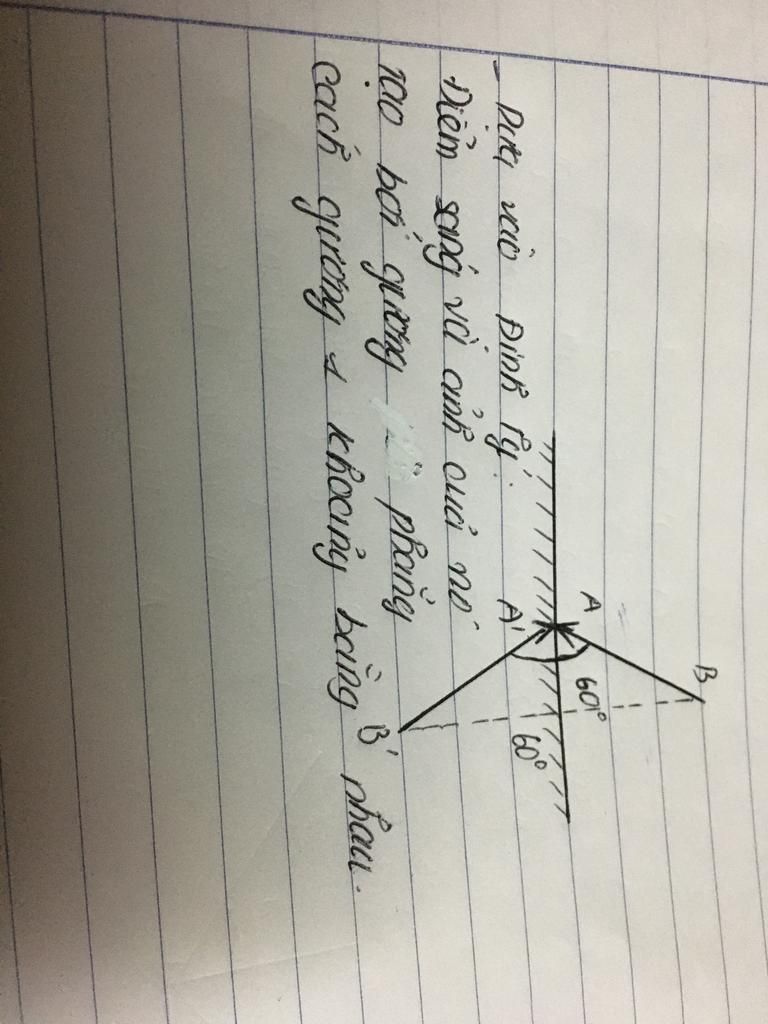 - Dựa vào Định lý:
Điểm sáng và ảnh của nó
tạo bởi gương phẳng
cách gương 1 khoảng bằng nhau.
B
A
60°
A'
60°
B'